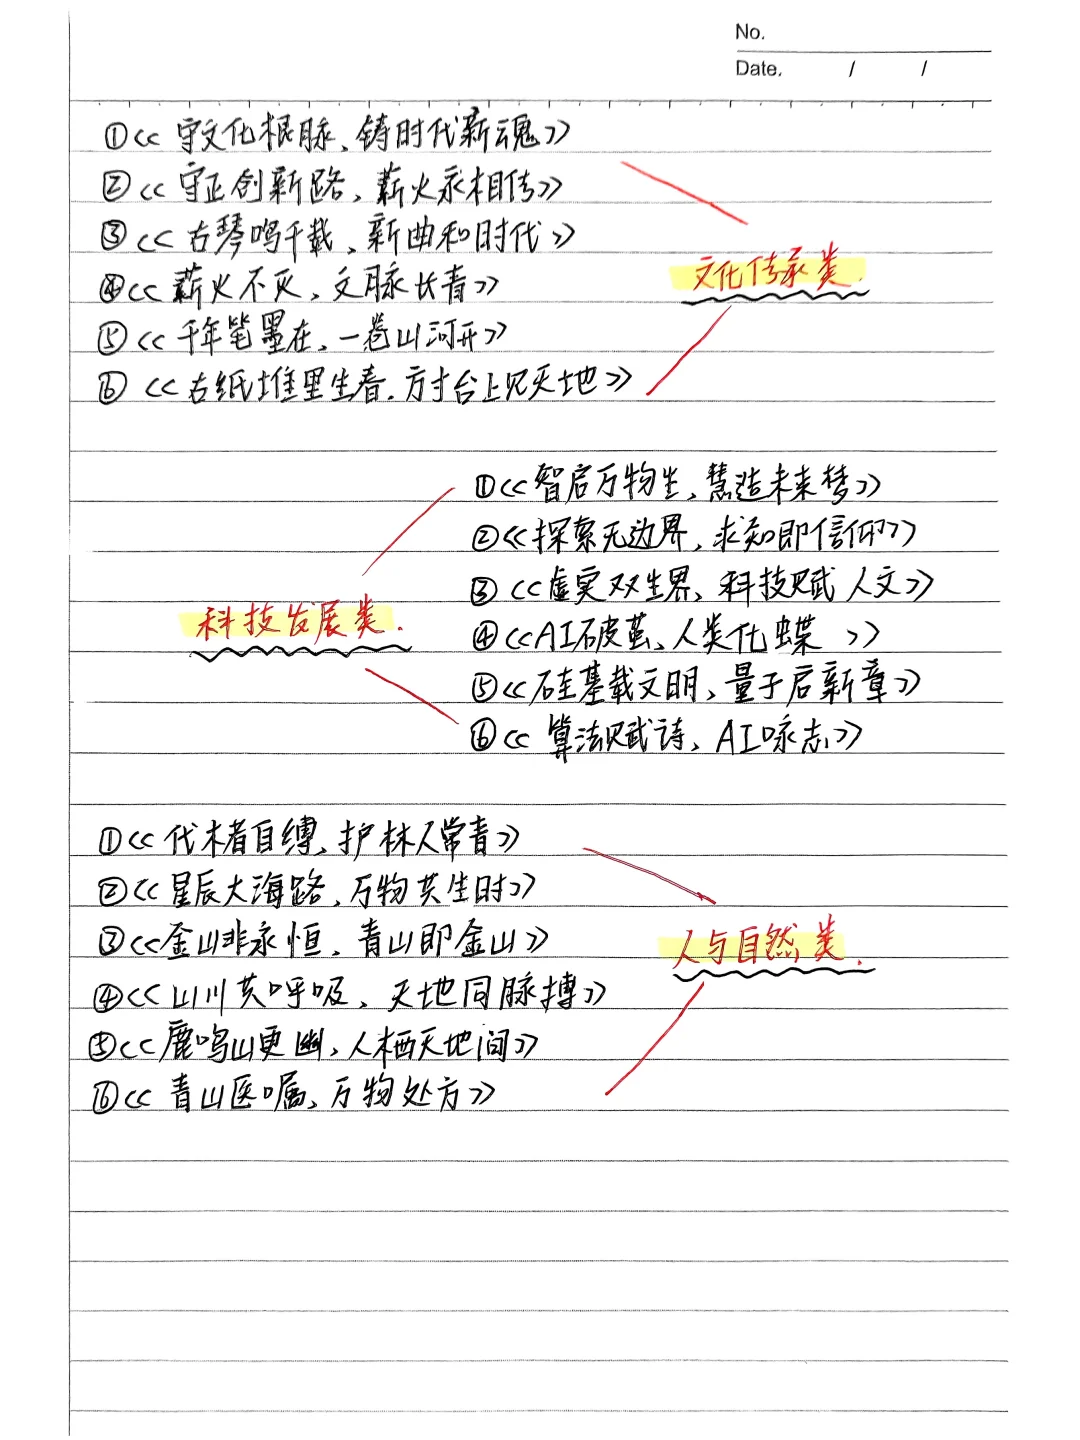 No.
Date. / /
①《守文化根脉、铸时代新魂》
②《守正创新路，薪火永相传》
③《古琴鸣千载，新曲和时代》
④《薪火不灭，文脉长青》
⑤《千年笔墨在，一卷山河开》
⑥《古纸堆里生春.方寸台上见天地》
文化传承类.
①《智启万物生，慧造未来梦》
②《探索无边界，求知即信仰》
③《虚实双生界，科技赋人文》
④《AI破茧、人类化蝶》
科技发展类.
⑤《硅基载文明，量子启新章》
⑥《算法赋诗，AI咏志》
①《伐木者自缚，护林人常青》
②《星辰大海路，万物共生时》
③《金山非永恒，青山即金山》
人与自然类.
④《山川共呼吸，天地同脉搏》
⑤《鹿鸣山更幽，人栖天地间》
⑥《青山医嘱，万物处方》